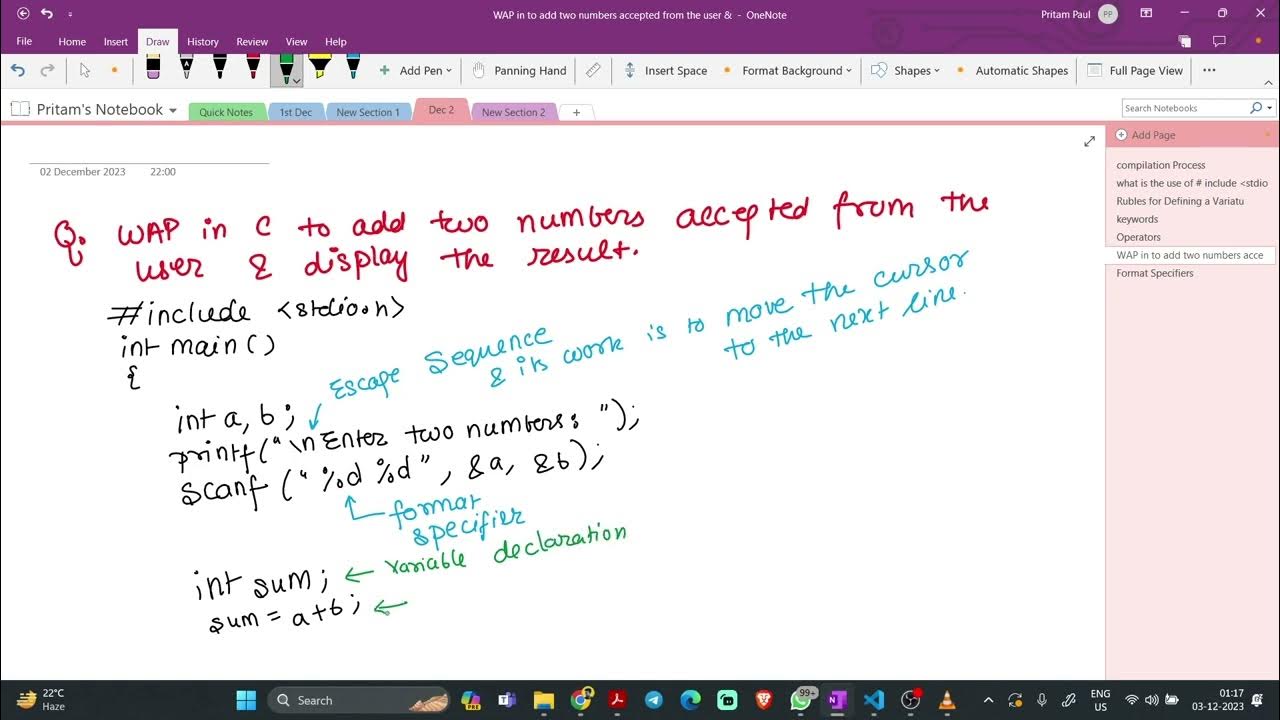 WAP in to add two numbers accepted from the user & - OneNote
Pritam Paul PP
File Home Insert Draw History Review View Help
Add Pen Panning Hand Insert Space Format Background Shapes Automatic Shapes Full Page View
Pritam's Notebook Quick Notes 1st Dec New Section 1 Dec 2 New Section 2 +
Search Notebooks
Add Page
compilation Process
what is the use of # include <stdio
Rubles for Defining a Variatu
keywords
Operators
WAP in to add two numbers acce
Format Specifiers
02 December 2023 22:00
Q. WAP in C to add two numbers accepted from the
user & display the result.
#include <stdio.h>
int main()
{
Escape Sequence
& its work is to move the cursor
to the next line.
int a, b;
printf("\nEnter two numbers: ");
scanf ("%d %d", &a, &b);
format
specifier
int sum; ← variable declaration
sum = a+b; ←
22°C
Haze
Search
99+
ENG
US
01:17
03-12-2023